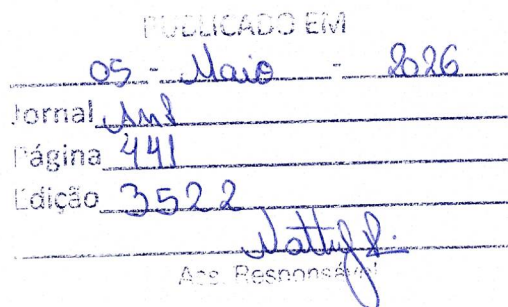 PUBLICADO EM
05 - Maio - 2026
Jornal
Página 441
Edição 3522
Ass. Responsável